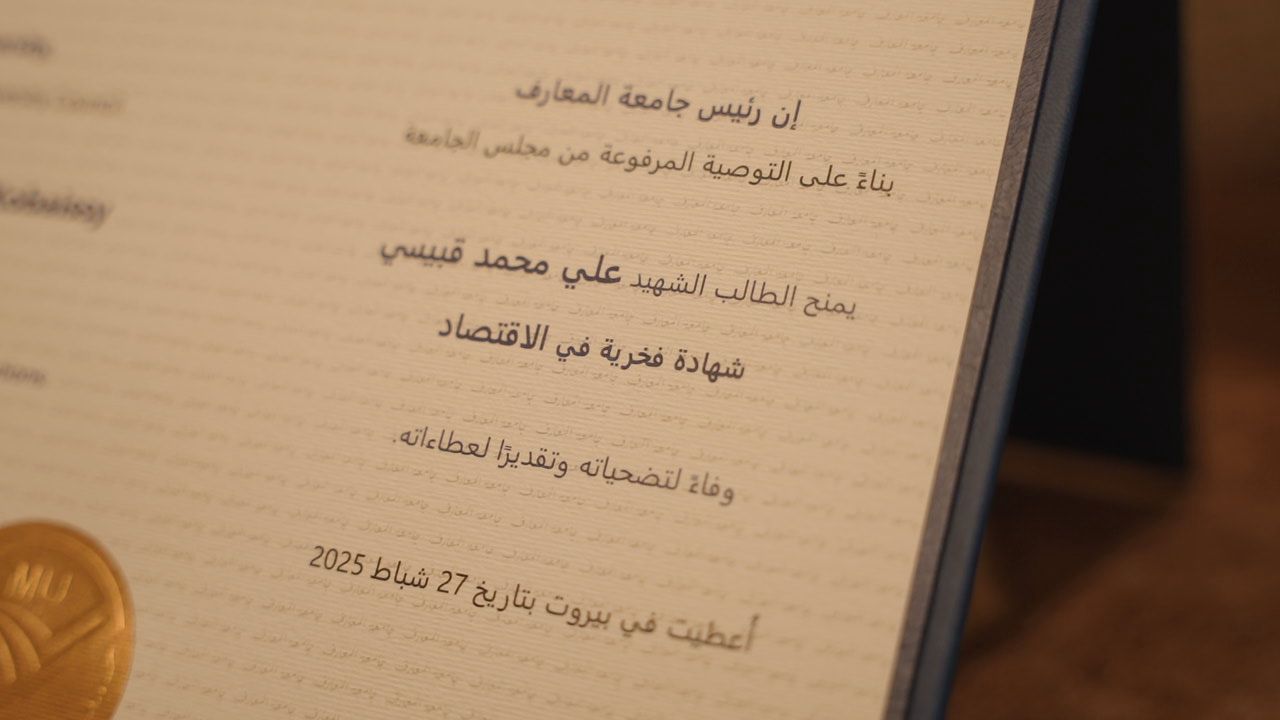 إن رئيس جامعة المعارف
بناءً على التوصية المرفوعة من مجلس الجامعة
يمنح الطالب الشهيد علي محمد قبيسي
شهادة فخرية في الاقتصاد
وفاءً لتضحياته وتقديرًا لعطاءاته.
أعطيت في بيروت بتاريخ 27 شباط 2025
MU